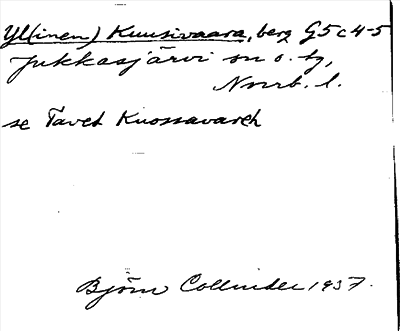 Yl(inen) Kuusivaara, berg G5c4-5
Jukkasjärvi sn o. tg,
Nnrb. l.
se Tavet Kuossavareh
Björn Collinder 1937.